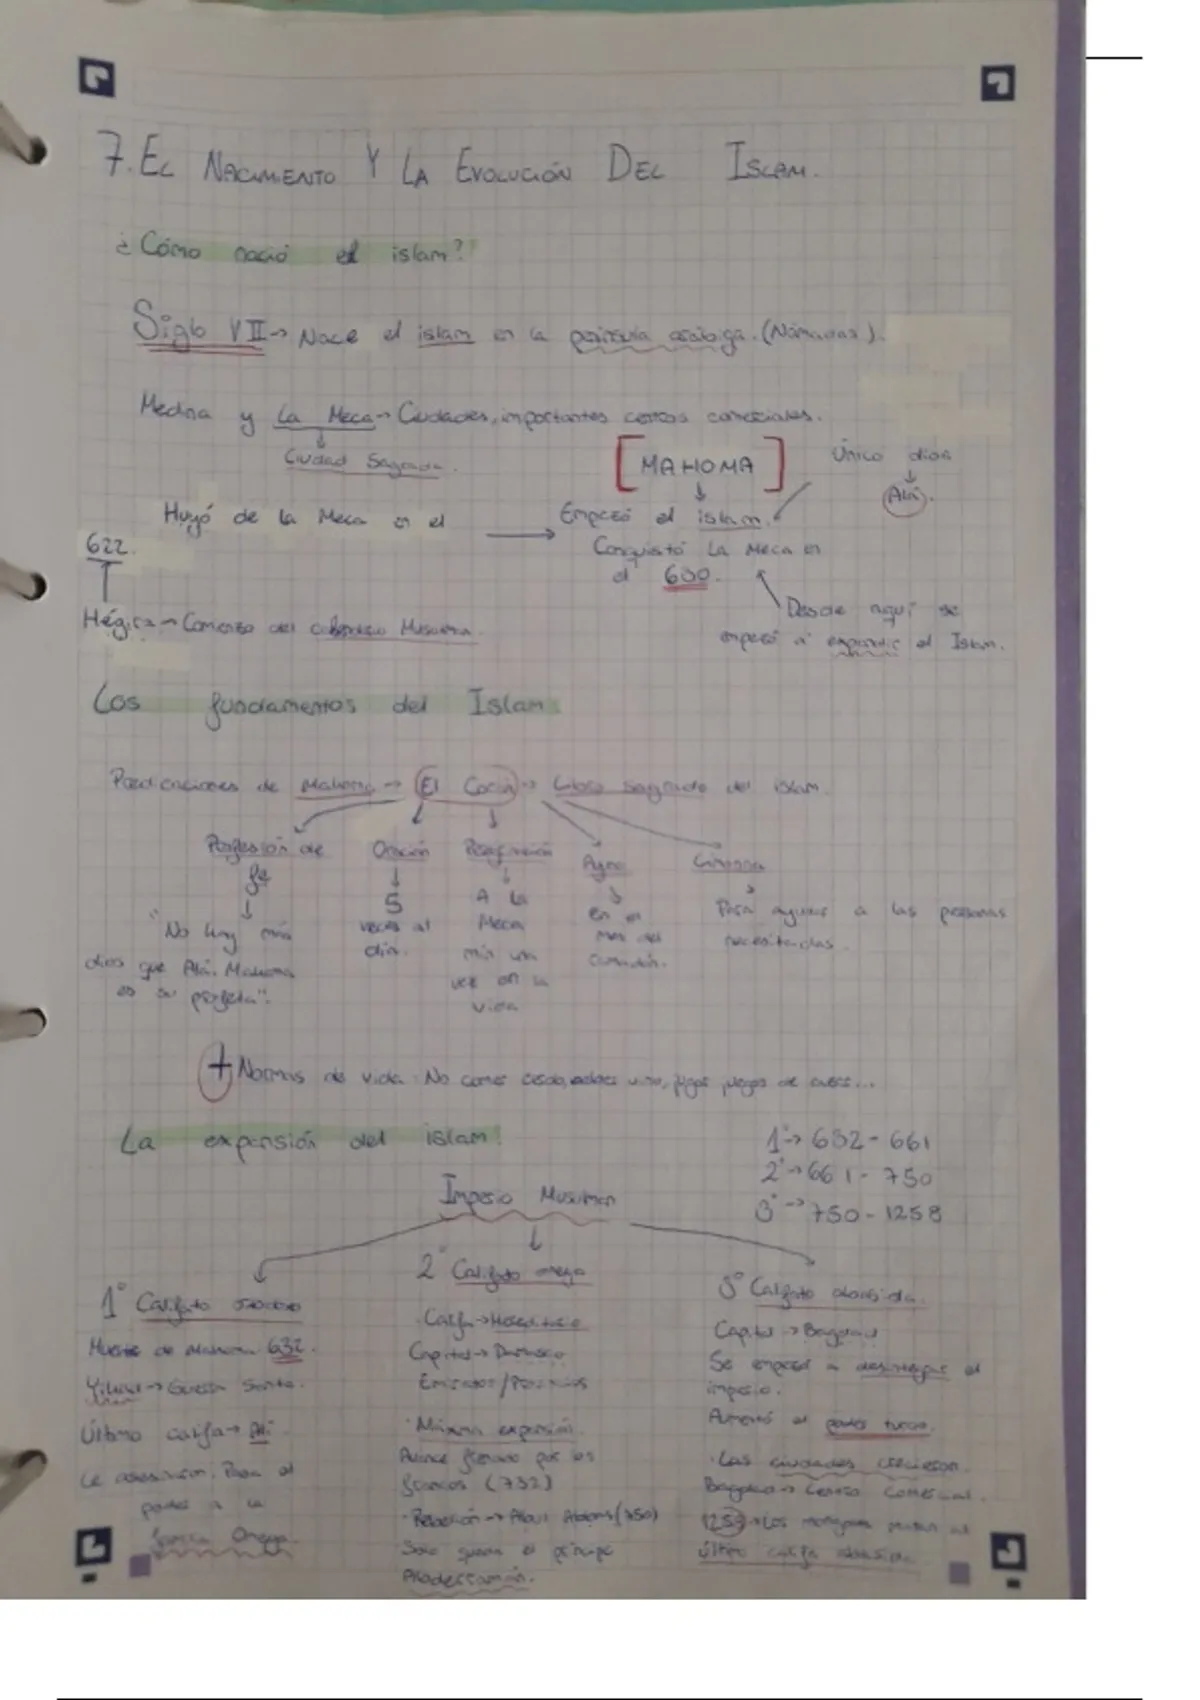 7. EL NACIMIENTO Y LA EVOLUCIÓN DEL ISLAM.
¿Cómo nació el islam?
Siglo VII → Nace el islam en la península arábiga. (Nómadas).
Medina y La Meca → Ciudades, importantes centros comerciales.
Ciudad Sagrada.
[MAHOMA]
Único dios
Alá.
Huyó de la Meca en el
622.
Empezó el islam.
Conquistó La Meca en
el 630.
Hégira → Comienzo del calendario Musulmán.
Desde aquí se
empezó a expandir el Islam.
Los fundamentos del Islam
Predicaciones de Mahoma → El Corán → Libro sagrado del islam.
Profesión de
fe
"No hay más
dios que Alá, Mahoma
es su profeta".
Oración
5
veces al
día.
Peregrinación
A la
Meca
mín una
vez en la
vida
Ayuno
en el
mes del
Limosna
Para ayudar a las personas
necesitadas.
+ Normas de vida. No comer cerdo, vino, juegos de
La expansión del islam:
1º → 632 - 661
2º → 661 - 750
3º → 750 - 1258
Imperio Musulman
1º Califato
Muerte de Mahoma 632.
Guerra Santa.
Último califa → Alí.
Le asesinaron. Pasa el
poder a la
familia Omeya.
2º Califato omeya
· Califa → Hereditario
Capital → Damasco
Emiratos / Provincias
· Máxima expansión
Avance frenado por los
francos (732)
· Rebelión → Abul Abbas (750)
Solo queda el príncipe
Abderramán.
3º Califato abasida.
Capital → Bagdad
Se empezó a desintegrar el
imperio.
Aumentó el poder turco.
· Las ciudades crecieron.
Bagdad → Centro comercial.
1258 → Los mongoles matan al
último califa abasida.